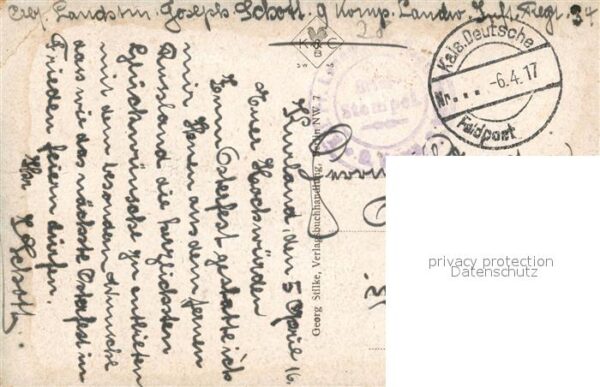 Abs. Landstm. Joseph Schott. 9 Komp. Landw. Inft. Regt. 34
Kais. Deutsche
Feldpost
Nr. - - - -6.4.17
Brief
Stempel
K G
Georg Stilke, Verlagsbuchhandlung, Berlin NW. 7
Kurland, den 5 April 16.
Euer Hochwürden
Zum Osterfest gestatte ich
mir Ihnen aus dem fernen
Russland die herzlichsten
Glückwünsche zu entbieten
mit dem besondern Wunsche
das wir das nächste Osterfest in
Frieden feiern dürfen.
Ihr
J Schott.
privacy protection
Datenschutz